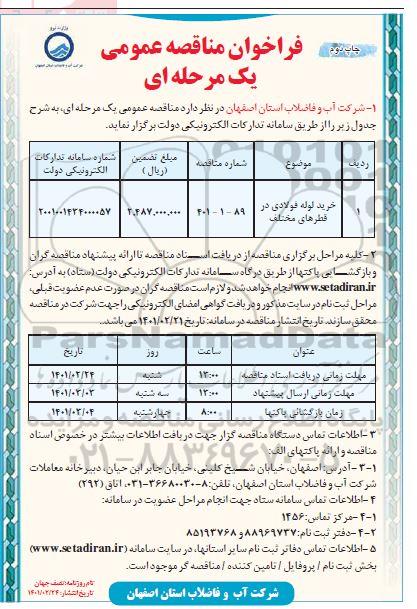 وزارت نیرو
شرکت آب و فاضلاب استان اصفهان
فراخوان مناقصه عمومی
یک مرحله ای
چاپ دوم
۱- شرکت آب و فاضلاب استان اصفهان در نظر دارد مناقصه عمومی یک مرحله ای، به شرح
جدول زیر را از طریق سامانه تدارکات الکترونیکی دولت برگزار نماید.
ردیف موضوع شماره مناقصه مبلغ تضمین (ریال) شماره سامانه تدارکات الکترونیکی دولت
۱ خرید لوله فولادی در قطرهای مختلف ۸۹ - ۱ - ۴۰۱ ۲,۴۸۷,۰۰۰,۰۰۰ ۲۰۰۱۰۰۱۴۳۴۰۰۰۰۵۷
۲- کلیه مراحل برگزاری مناقصه از دریافت اسناد مناقصه تا ارائه پیشنهاد مناقصه گران
و بازگشایی پاکتها از طریق درگاه سامانه تدارکات الکترونیکی دولت (ستاد) به آدرس:
www.setadiran.ir انجام خواهد شد و لازم است مناقصه گران در صورت عدم عضویت قبلی،
مراحل ثبت نام در سایت مذکور و دریافت گواهی امضای الکترونیکی را جهت شرکت در مناقصه
محقق سازند. تاریخ انتشار مناقصه در سامانه: تاریخ ۱۴۰۱/۰۲/۲۱ می باشد..
عنوان ساعت روز تاریخ
مهلت زمانی دریافت اسناد مناقصه ۱۳:۰۰ شنبه ۱۴۰۱/۰۲/۲۴
مهلت زمانی ارسال پیشنهاد ۱۳:۰۰ سه شنبه ۱۴۰۱/۰۳/۰۳
زمان بازگشائی پاکتها ۸:۰۰ چهارشنبه ۱۴۰۱/۰۳/۰۴
۳- اطلاعات تماس دستگاه مناقصه گزار جهت دریافت اطلاعات بیشتر در خصوص اسناد
مناقصه و ارائه پاکتهای الف:
۳-۱- آدرس: اصفهان، خیابان شیخ کلینی، خیابان جابر ابن حیان، دبیرخانه معاملات
شرکت آب و فاضلاب استان اصفهان، تلفن: ۸-۳۶۶۸۰۰۳۰-۰۳۱، اتاق (۲۹۲)
۴- اطلاعات تماس سامانه ستاد جهت انجام مراحل عضویت در سامانه:
۴-۱- مرکز تماس: ۱۴۵۶
۴-۲- دفتر ثبت نام: ۸۸۹۶۹۷۳۷ و ۸۵۱۹۳۷۶۸
۵- اطلاعات تماس دفاتر ثبت نام سایر استانها، در سایت سامانه (www.setadiran.ir)
بخش ثبت نام / پروفایل / تامین کننده / مناقصه گر موجود است.
شرکت آب و فاضلاب استان اصفهان
نام روزنامه: نصف جهان
تاریخ انتشار: ۱۴۰۱/۰۲/۲۴
ParsNamadData
۰۲۱-۸۸۳۴۹۶۷۰-۵